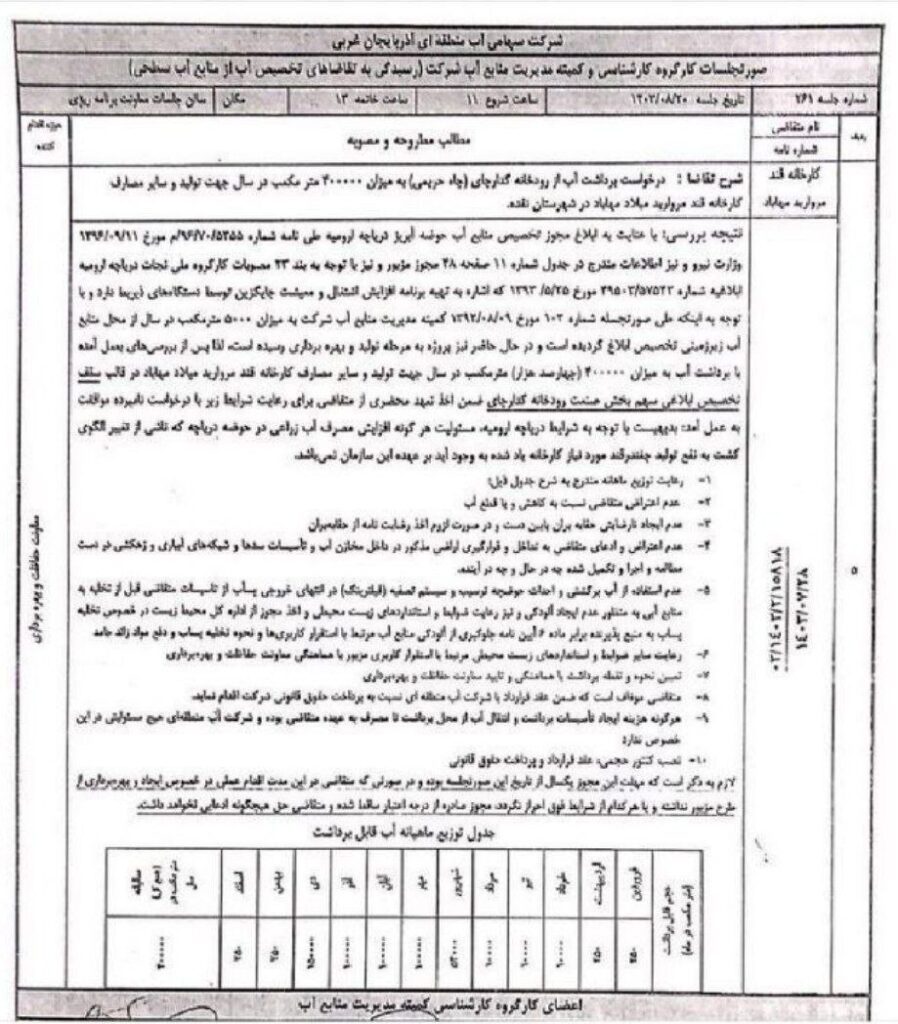 شرکت سهامی آب منطقه ای آذربایجان غربی
صورتجلسات کارگروه کارشناسی و کمیته مدیریت منابع آب شرکت (رسیدگی به تقاضاهای تخصیص آب از منابع آب سطحی)
شماره جلسه ۲۶۱ تاریخ جلسه ۱۴۰۳/۰۸/۲۰ ساعت شروع ۱۱ ساعت خاتمه ۱۳ مکان سالن جلسات معاونت برنامه ریزی
ردیف نام متقاضی شماره نامه مطالب مطروحه و مصوبه حوزه اقدام کننده
۵
کارخانه قند
مروارید مهاباد
۰۳/۱۴۰۳/۲/۱۵۸۱۸
۱۴۰۳/۰۷/۲۸
شرح تقاضا : درخواست برداشت آب از رودخانه گدارچای (چاه حریمی) به میزان ۴۰۰۰۰۰ متر مکعب در سال جهت تولید و سایر مصارف
کارخانه قند مروارید میلاد مهاباد در شهرستان نقده.
نتیجه بررسی: با عنایت به ابلاغ مجوز تخصیص منابع آب حوضه آبریز دریاچه ارومیه طی نامه شماره ۹۶/۷۰/۵۳۵۵/م مورخ ۱۳۹۶/۰۹/۱۱
وزارت نیرو و نیز اطلاعات مندرج در جدول شماره ۱۱ صفحه ۲۸ مجوز مزبور و نیز با توجه به بند ۲۳ مصوبات کارگروه ملی نجات دریاچه ارومیه
ابلاغیه شماره ۲۹۵۰۳/۵۷۵۲۳ مورخ ۱۳۹۳/۵/۲۵ که اشاره به تهیه برنامه افزایش اشتغال و معیشت جایگزین توسط دستگاه‌های ذیربط دارد و با
توجه به اینکه طی صورتجلسه شماره ۱۰۳ مورخ ۱۳۹۲/۰۸/۰۹ کمیته مدیریت منابع آب شرکت به میزان ۵۰۰۰ مترمکعب در سال از محل منابع
آب زیرزمینی تخصیص ابلاغ گردیده است و در حال حاضر نیز پروژه به مرحله تولید و بهره برداری رسیده است، لذا پس از بررسی‌های بعمل آمده
با برداشت آب به میزان ۴۰۰۰۰۰ (چهارصد هزار) مترمکعب در سال جهت تولید و سایر مصارف کارخانه قند مروارید میلاد مهاباد در قالب سقف
تخصیص ابلاغی سهم بخش صنعت رودخانه گدارچای ضمن اخذ تعهد محضری از متقاضی برای رعایت شرایط زیر با درخواست نامبرده موافقت
به عمل آمد: بدیهیست با توجه به شرایط دریاچه ارومیه، مسئولیت هر گونه افزایش مصرف آب زراعی در حوضه دریاچه که ناشی از تغییر الگوی
کشت به نفع تولید چغندرقند مورد نیاز کارخانه یاد شده به وجود آید بر عهده این سازمان نمی‌باشد.
۱- رعایت توزیع ماهانه مندرج به شرح جدول ذیل:
۲- عدم اعتراض متقاضی نسبت به کاهش و یا قطع آب
۳- عدم ایجاد نارضایتی حقابه بران پایین دست و در صورت لزوم اخذ رضایت نامه از حقابه‌بران
۴- عدم اعتراض و ادعای متقاضی به تداخل و قرارگیری اراضی مذکور در داخل مخازن آب و تأسیسات سدها و شبکه‌های آبیاری و زهکشی در دست
مطالعه و اجرا و تکمیل شده چه در حال و چه در آینده.
۵- عدم استفاده از آب برگشتی و احداث حوضچه ترسیب و سیستم تصفیه (فیلترینگ) در انتهای خروجی پساب از تاسیسات متقاضی قبل از تخلیه به
منابع آبی به منظور عدم ایجاد آلودگی و نیز رعایت ضوابط و استانداردهای زیست محیطی و اخذ مجوز از اداره کل محیط زیست در خصوص تخلیه
پساب به منبع پذیرنده برابر ماده ۶ آیین نامه جلوگیری از آلودگی منابع آب مرتبط با استقرار کاربری‌ها و نحوه تخلیه پساب و دفع مواد زائد جامد
۶- رعایت سایر ضوابط و استانداردهای زیست محیطی مرتبط با استقرار کاربری مزبور با هماهنگی معاونت حفاظت و بهره‌برداری
۷- تعیین نحوه و نقطه برداشت با هماهنگی و تایید معاونت حفاظت و بهره‌برداری
۸- متقاضی موظف است که ضمن عقد قرارداد با شرکت آب منطقه ای نسبت به پرداخت حقوق قانونی شرکت اقدام نماید.
۹- هرگونه هزینه ایجاد تأسیسات برداشت و انتقال آب از محل برداشت تا مصرف به عهده متقاضی بوده و شرکت آب منطقه‌ای هیچ مسئولیتی در این
خصوص ندارد
۱۰- نصب کنتور حجمی، عقد قرارداد و پرداخت حقوق قانونی
لازم به ذکر است که مهلت این مجوز یکسال از تاریخ این صورتجلسه بوده و در صورتی که متقاضی در این مدت اقدام عملی در خصوص ایجاد و بهره‌برداری از
طرح مزبور نداشته و یا هرکدام از شرایط فوق احراز نگردد، مجوز صادره از درجه اعتبار ساقط شده و متقاضی حق هیچگونه ادعایی نخواهد داشت.
معاونت حفاظت و بهره برداری
جدول توزیع ماهیانه آب قابل برداشت
حجم قابل برداشت (متر مکعب در ماه) فروردین اردیبهشت خرداد تیر مرداد شهریور مهر آبان آذر دی بهمن اسفند سالیانه (جمع کل) متر مکعب در سال
اعضای کارگروه کارشناسی کمیته مدیریت منابع آب